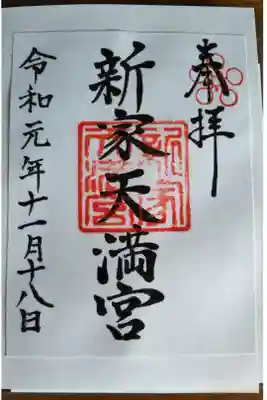 奉拝
新家天満宮
令和元年十一月十八日